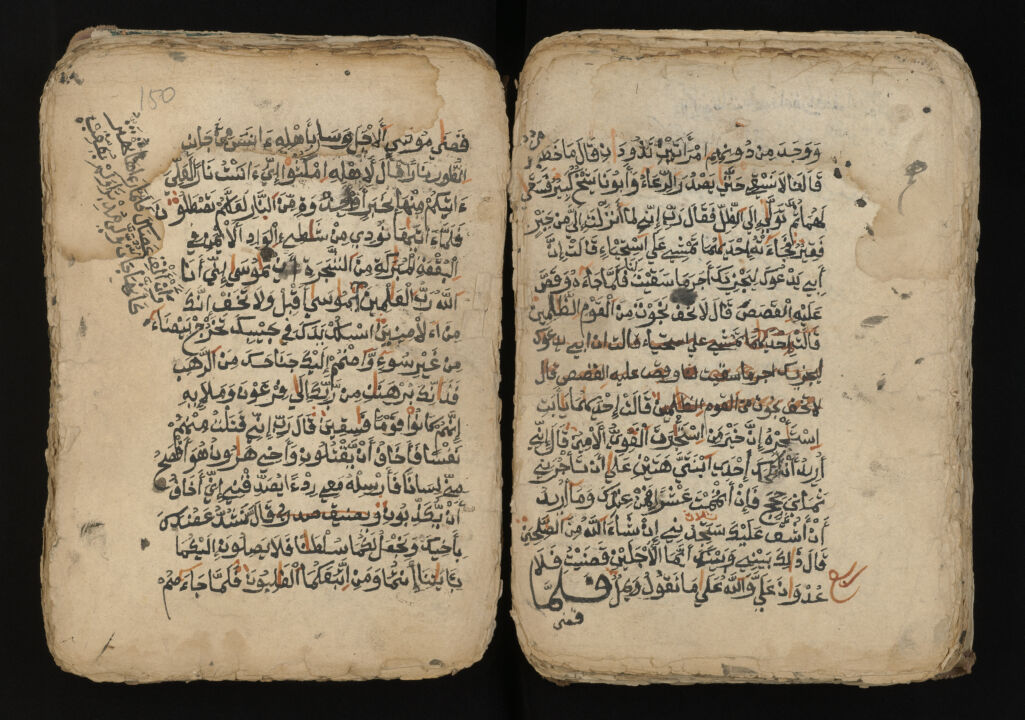 وَوَجَدَ مِن دُونِهِمُ امْرَأَتَيْنِ تَذُودَانِ قَالَ مَا خَطْبُ
قَالَتَا لَا نَسْقِي حَتَّى يَصْدُرَ الرِّعَاءُ وَأَبُونَا شَيْخٌ كَبِيرٌ فَسَقَى
لَهُمَا ثُمَّ تَوَلَّى إِلَى الظِّلِّ فَقَالَ رَبِّ إِنِّي لِمَا أَنزَلْتَ إِلَيَّ مِنْ خَيْرٍ
فَقِيرٌ فَجَاءَتْهُ إِحْدَاهُمَا تَمْشِي عَلَى اسْتِحْيَاءٍ قَالَتْ إِنَّ
أَبِي يَدْعُوكَ لِيَجْزِيَكَ أَجْرَ مَا سَقَيْتَ لَنَا فَلَمَّا جَاءَهُ وَقَصَّ
عَلَيْهِ الْقَصَصَ قَالَ لَا تَخَفْ نَجَوْتَ مِنَ الْقَوْمِ الظَّالِمِينَ
قَالَتْ إِحْدَاهُمَا تمشي على استحياء قالت ان ابي يدعوك
ليجزيك اجر ما سقيت وقص عليه القصص قال
لا تخف نجوت من القوم الظلمين قَالَتْ إِحْدَاهُمَا يَا أَبَتِ
اسْتَأْجِرْهُ إِنَّ خَيْرَ مَنِ اسْتَأْجَرْتَ الْقَوِيُّ الْأَمِينُ قَالَ إِنِّي
أُرِيدُ أَنْ أُنكِحَكَ إِحْدَى ابْنَتَيَّ هَاتَيْنِ عَلَى أَن تَأْجُرَنِي
ثَمَانِيَ حِجَجٍ فَإِنْ أَتْمَمْتَ عَشْرًا فَمِنْ عِندِكَ وَمَا أُرِيدُ
أَنْ أَشُقَّ عَلَيْكَ سَتَجِدُنِي إِن شَاءَ اللَّهُ مِنَ الصَّالِحِينَ
قَالَ ذَٰلِكَ بَيْنِي وَبَيْنَكَ أَيَّمَا الْأَجَلَيْنِ قَضَيْتُ فَلَا
عُدْوَانَ عَلَيَّ وَاللَّهُ عَلَى مَا نَقُولُ وَكِيلٌ فَلَمَّا
ربع
قضى
150
قَضَى مُوسَى الْأَجَلَ وَسَارَ بِأَهْلِهِ ءَانَسَ مِن جَانِبِ
الطُّورِ نَارًا قَالَ لِأَهْلِهِ امْكُثُوا إِنِّي ءَانَسْتُ نَارًا لَعَلِّي
ءَاتِيكُم مِّنْهَا بِخَبَرٍ أَوْ جَذْوَةٍ مِّنَ النَّارِ لَعَلَّكُمْ تَصْطَلُونَ
فَلَمَّا أَتَاهَا نُودِيَ مِن شَاطِئِ الْوَادِ الْأَيْمَنِ فِي
الْبُقْعَةِ الْمُبَارَكَةِ مِنَ الشَّجَرَةِ أَن يَا مُوسَى إِنِّي أَنَا
اللَّهُ رَبُّ الْعَالَمِينَ يَا مُوسَى أَقْبِلْ وَلَا تَخَفْ إِنَّكَ
مِنَ الْآمِنِينَ اسْلُكْ يَدَكَ فِي جَيْبِكَ تَخْرُجْ بَيْضَاءَ
مِنْ غَيْرِ سُوءٍ وَاضْمُمْ إِلَيْكَ جَنَاحَكَ مِنَ الرَّهَبِ
فَذَانِكَ بُرْهَانَانِ مِن رَّبِّكَ إِلَى فِرْعَوْنَ وَمَلَإِيهِ
إِنَّهُمْ كَانُوا قَوْمًا فَاسِقِينَ قَالَ رَبِّ إِنِّي قَتَلْتُ مِنْهُمْ
نَفْسًا فَأَخَافُ أَن يَقْتُلُونِ وَأَخِي هَارُونُ هُوَ أَفْصَحُ
مِنِّي لِسَانًا فَأَرْسِلْهُ مَعِي رِدْءًا يُصَدِّقُنِي إِنِّي أَخَافُ
أَن يُكَذِّبُونِ قَالَ سَنَشُدُّ عَضُدَكَ
بِأَخِيكَ وَنَجْعَلُ لَكُمَا سُلْطَانًا فَلَا يَصِلُونَ إِلَيْكُمَا
بِآيَاتِنَا أَنتُمَا وَمَنِ اتَّبَعَكُمَا الْغَالِبُونَ فَلَمَّا جَاءَهُم